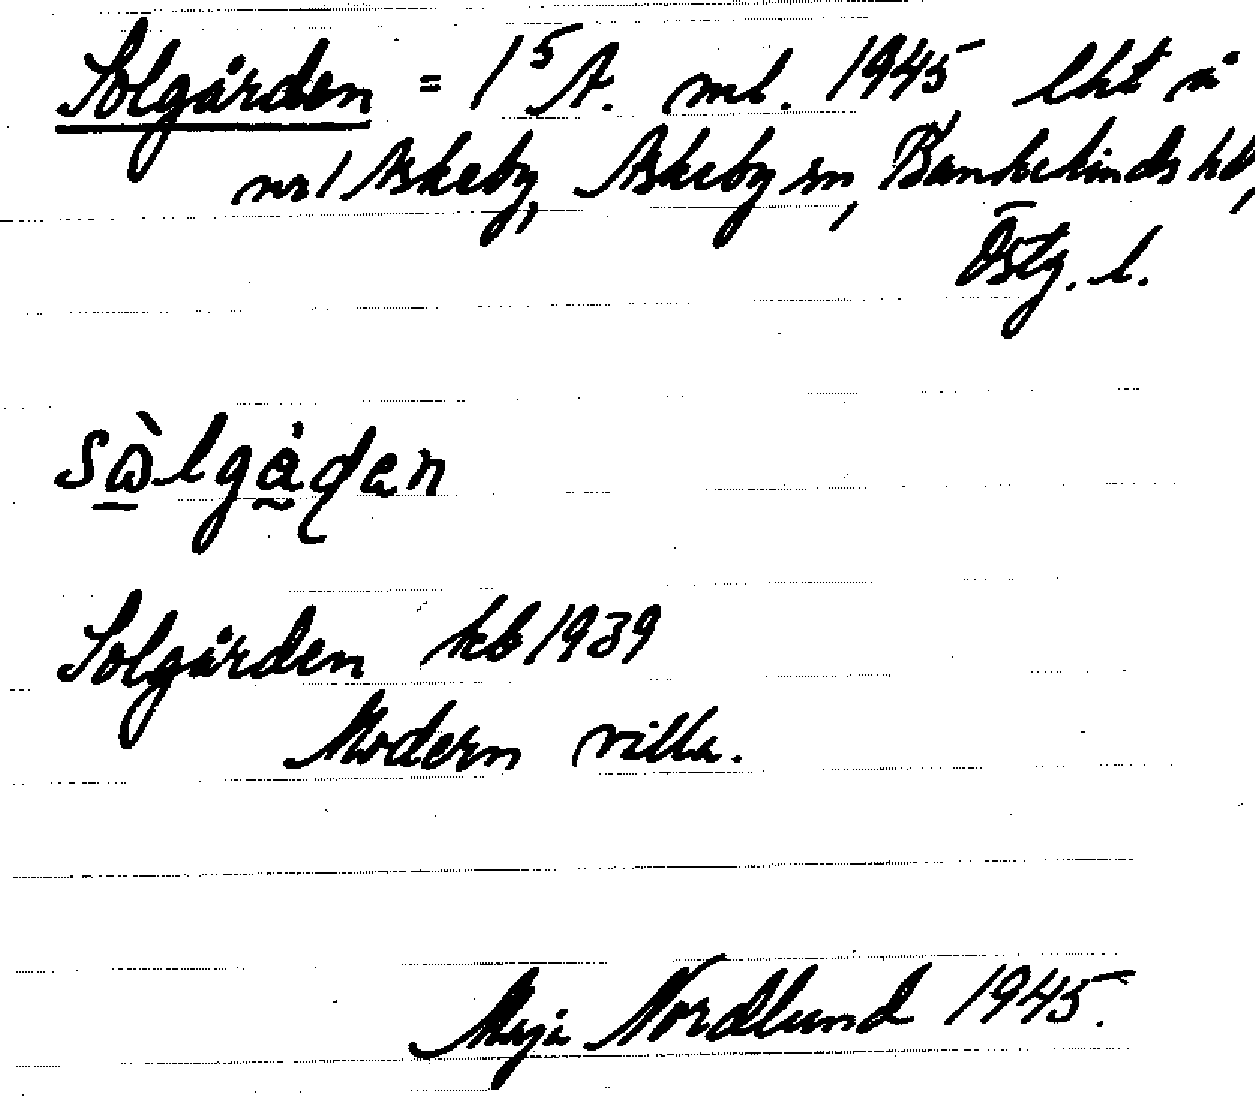 Solgården = 1⁵A. ml. 1945 lht å
nr 1 Askeby, Askeby sn, Bankekinds hd,
Östg. l.
sòlgåɖen
Solgården kb 1939
Modern villa.
Maja Nordlund 1945.